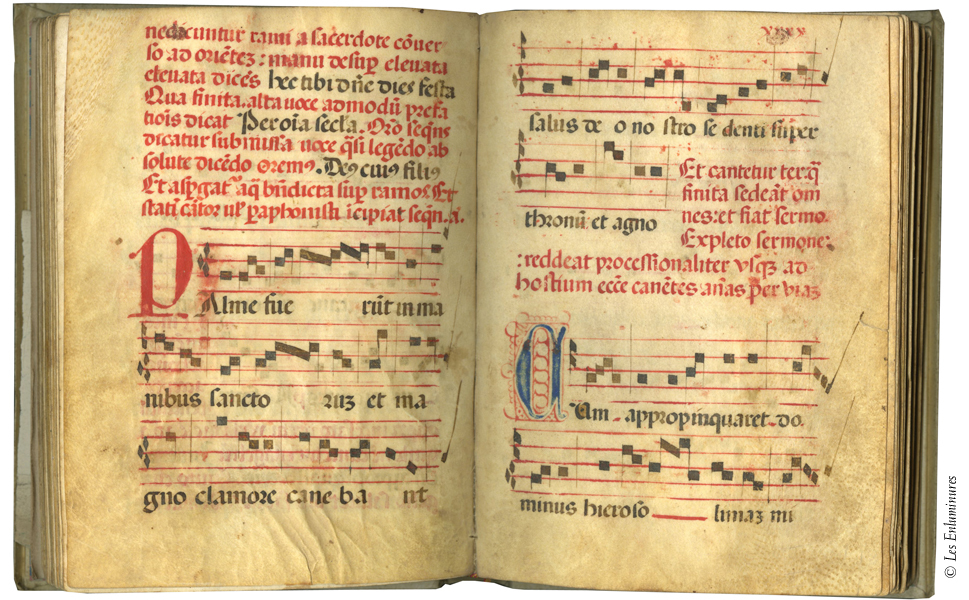 nedicuntur rami a sacerdote cōver
so ad oriētez : manu desuꝑ elevata
elevata dicēs hec tibi dn̄e dies festa
Qua finita. alta voce ad modū prefa
tiōis dicat Per oīa secl̄a. Orō seqn̄s
dicatur submissa voce q̄si legēdo ab
solute dicēdo oremꝰ. Deꝰ cuiꝰ filiꝰ
Et asꝑgatᷣ aq̄ bn̄dicta suꝑ ramos. Et
statī cātor vꝉ paraphonisti īcipiāt seqn̄. a.
PAlme fue rūt in ma
nibus sancto ruꝫ et ma
gno clamore cane ba nt
xxxx
salus de o no stro se denti super
thronū et agno
Et cantetur ter. q̄
finita sedeāt om
nes: et fiat sermo.
Expleto sermone:
: reddeat processionaliter vsqꝫ ad
hostium ecc̄e canētes an̄as per viaꝫ
CUm appropinquaret do
minus hieroso limaꝫ mi
© Les Enluminures